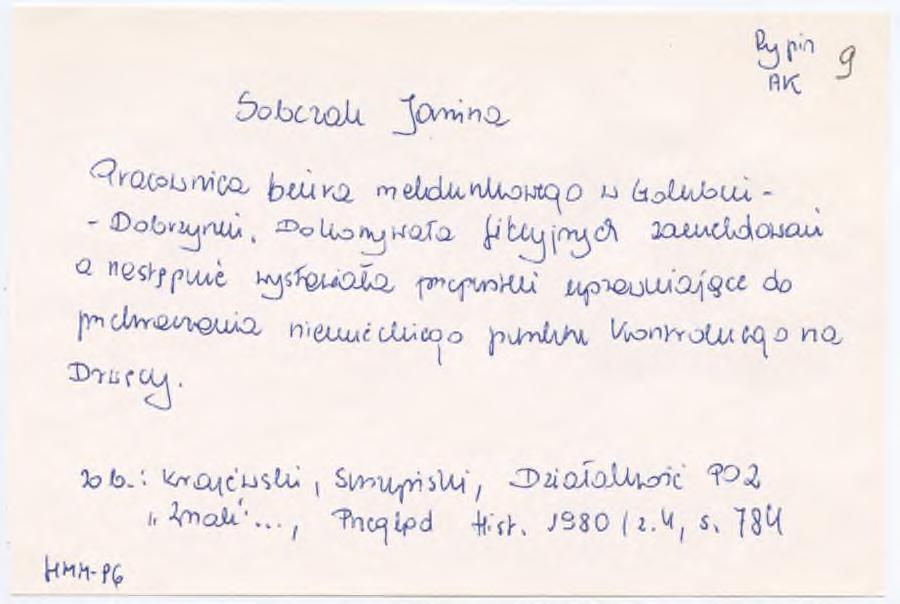 Rypin 9
AK
Sobczak Janina
Pracownica biura meldunkowego w Golubiu -
- Dobrzyniu. Dokonywała fikcyjnych zameldowań
a następnie wystawiała przepustki uprawniające do
przekraczania niemieckiego punktu kontrolnego na
Drwęcy.
zob.: Krajewski, Skrzypiński, Działalność POZ
"Znak"..., Przegląd Hist. 1980/z.4, s. 784
HMM-PG